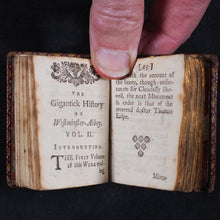 THE
Gigantick History
OF
Westminster-Abbey.
VOL. II.
INTRODUCTION.
THE First Volume
of this Work end-
ing,
(45)
with the account of
the brave, though unfor-
tunate Sir Cloudesly Sho-
vell, the next Monument
in order is that of the
reverend doctor Thomas
Knipe.